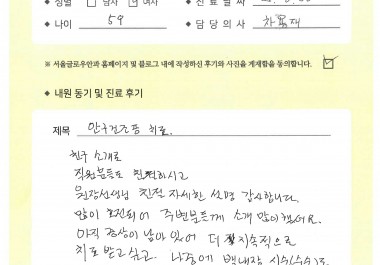 ◆ 성별 □ 남자 ☑ 여자 ◆ 진료날짜
◆ 나이 59 ◆ 담당의사 차흥재
※ 서울글로우안과 홈페이지 및 블로그 내에 작성하신 후기와 사진을 게재함을 동의합니다. ☑
◆ 내원 동기 및 진료 후기
제목 안구건조증 치료.
친구 소개로
직원분들도 친절하시고
원장선생님 친절 자세한 설명 감사합니다.
많이 호전되어 주변분들께 소개 많이 했어요.
아직 증상이 남아 있어 더 지속적으로
치료 받고 싶고. 나중에 백내장 시술(수술)도